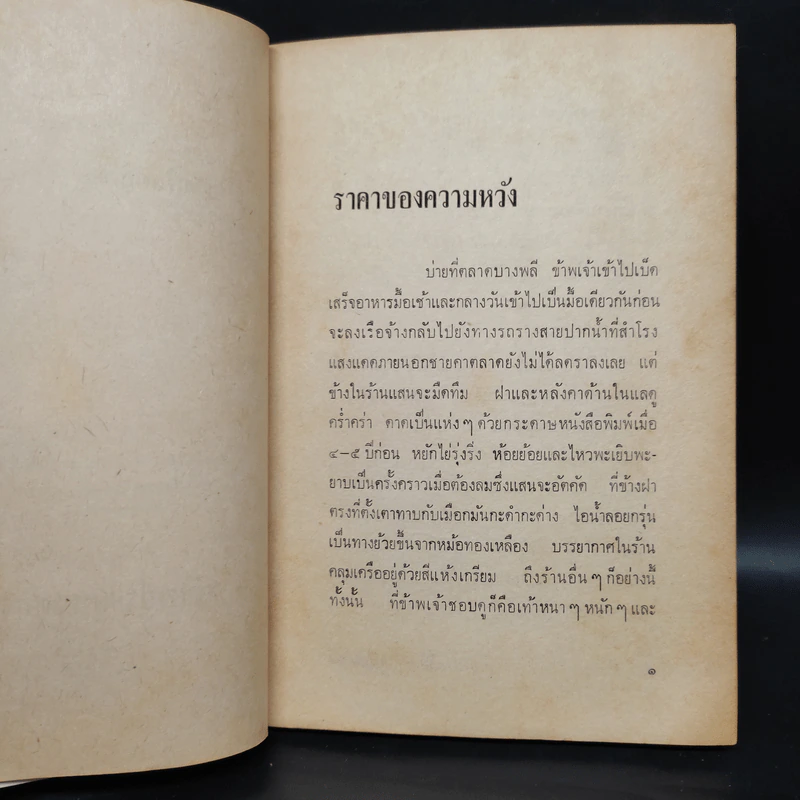 ราคาของความหวัง
บ่ายที่ตลาดบางพลี ข้าพเจ้าเข้าไปเบ็ด
เสร็จอาหารมื้อเช้าและกลางวันเข้าไปเป็นมื้อเดียวกันก่อน
จะลงเรือจ้างกลับไปยังทางรถรางสายปากน้ำที่สำโรง
แสงแดดภายนอกชายคาตลาดยังไม่ได้ลดราลงเลย แต่
ข้างในร้านแสนจะมืดทึม ฝาและหลังคาด้านในแลดู
คร่ำคร่า คาดเป็นแห่ง ๆ ด้วยกระดาษหนังสือพิมพ์เมื่อ
๔–๕ ปีก่อน หยักไย่รุ่งริ่ง ห้อยย้อยและไหวพะเยิบพะ-
ยาบเป็นครั้งคราวเมื่อต้องลมซึ่งแสนจะอัตคัด ที่ข้างฝา
ตรงที่ตั้งเตาทาบกับเมือกมันกะดำกะด่าง ไอน้ำลอยกรุ่น
เป็นทางย้วยขึ้นจากหม้อทองเหลือง บรรยากาศในร้าน
คลุมเครืออยู่ด้วยสีแห้งเกรียม ถึงร้านอื่น ๆ ก็อย่างนี้
ทั้งนั้น ที่ข้าพเจ้าชอบดูก็คือเท้าหนา ๆ หนัก ๆ และ
๑